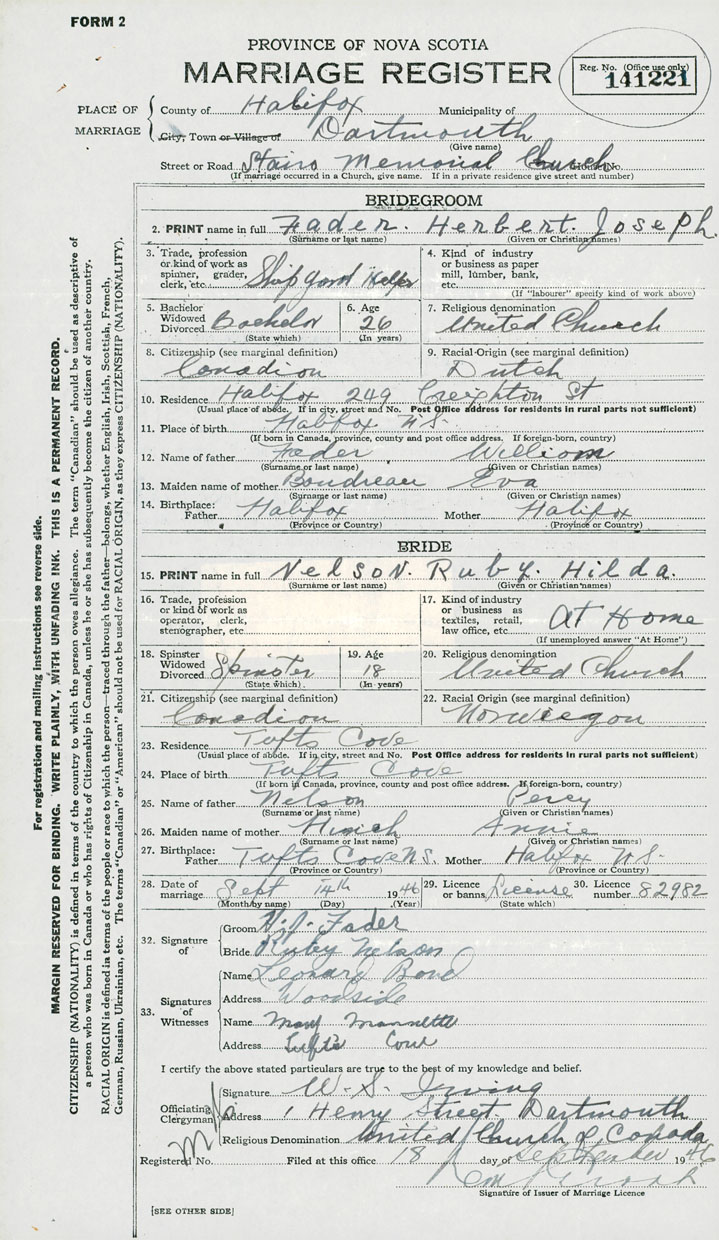 FORM 2
PROVINCE OF NOVA SCOTIA
MARRIAGE REGISTER
Reg. No. (Office use only)
141221
PLACE OF MARRIAGE
County of Halifax Municipality of
City, Town or Village of Dartmouth
(Give name)
Street or Road Stairs Memorial Church House No.
(If marriage occurred in a Church, give name. If in a private residence give street and number)
BRIDEGROOM
2. PRINT name in full Fader. Herbert. Joseph.
(Surname or last name) (Given or Christian names)
3. Trade, profession or kind of work as spinner, grader, clerk, etc. Shipyard Helper
4. Kind of industry or business as paper mill, lumber, bank, etc.
(If "labourer" specify kind of work above)
5. Bachelor Widowed Divorced Bachelor
(State which)
6. Age 26
(In years)
7. Religious denomination United Church
8. Citizenship (see marginal definition) Canadian
9. Racial Origin (see marginal definition) Dutch
10. Residence Halifax 249 Creighton St
(Usual place of abode. If in city, street and No. Post Office address for residents in rural parts not sufficient)
11. Place of birth Halifax N.S.
(If born in Canada, province, county and post office address. If foreign-born, country)
12. Name of father Fader William
(Surname or last name) (Given or Christian names)
13. Maiden name of mother Boudreau Eva
(Surname or last name) (Given or Christian names)
14. Birthplace: Father Halifax Mother Halifax
(Province or Country) (Province or Country)
BRIDE
15. PRINT name in full Nelson. Ruby. Hilda.
(Surname or last name) (Given or Christian names)
16. Trade, profession or kind of work as operator, clerk, stenographer, etc
17. Kind of industry or business as textiles, retail, law office, etc. At Home
(If unemployed answer "At Home")
18. Spinster Widowed Divorced Spinster
(State which)
19. Age 18
(In years)
20. Religious denomination United Church
21. Citizenship (see marginal definition) Canadian
22. Racial Origin (see marginal definition) Norwiegan
23. Residence Tufts Cove
(Usual place of abode. If in city, street and No. Post Office address for residents in rural parts not sufficient)
24. Place of birth Tufts Cove
(If born in Canada, province, county and post office address. If foreign-born, country)
25. Name of father Nelson Percy
(Surname or last name) (Given or Christian names)
26. Maiden name of mother Annie
(Surname or last name) (Given or Christian names)
27. Birthplace: Father Tufts Cove N.S. Mother Halifax N.S.
(Province or Country) (Province or Country)
28. Date of marriage Sept 14th 1946
(Month by name) (Day) (Year)
29. Licence or banns License
(State which)
30. Licence number 82982
32. Signature of
Groom H.J. Fader
Bride Ruby Nelson
33. Signatures of Witnesses
Name Leonard Bond
Address Woodside
Name Mary Mannette
Address Tufts Cove
I certify the above stated particulars are true to the best of my knowledge and belief.
Officiating Clergyman
Signature W. S. Irving
Address 1 Henry Street Dartmouth
Religious Denomination United Church of Canada
Registered No. Filed at this office 18 day of September 1946
Signature of Issuer of Marriage Licence
[SEE OTHER SIDE]
For registration and mailing instructions see reverse side.
MARGIN RESERVED FOR BINDING. WRITE PLAINLY, WITH UNFADING INK. THIS IS A PERMANENT RECORD.
CITIZENSHIP (NATIONALITY) is defined in terms of the country to which the person owes allegiance. The term "Canadian" should be used as descriptive of
a person who was born in Canada or who has rights of Citizenship in Canada, unless he or she has subsequently become the citizen of another country.
RACIAL ORIGIN is defined in terms of the people or race to which the person—traced through the father—belongs, whether English, Irish, Scottish, French,
German, Russian, Ukrainian, etc. The terms "Canadian" or "American" should not be used for RACIAL ORIGIN, as they express CITIZENSHIP (NATIONALITY).